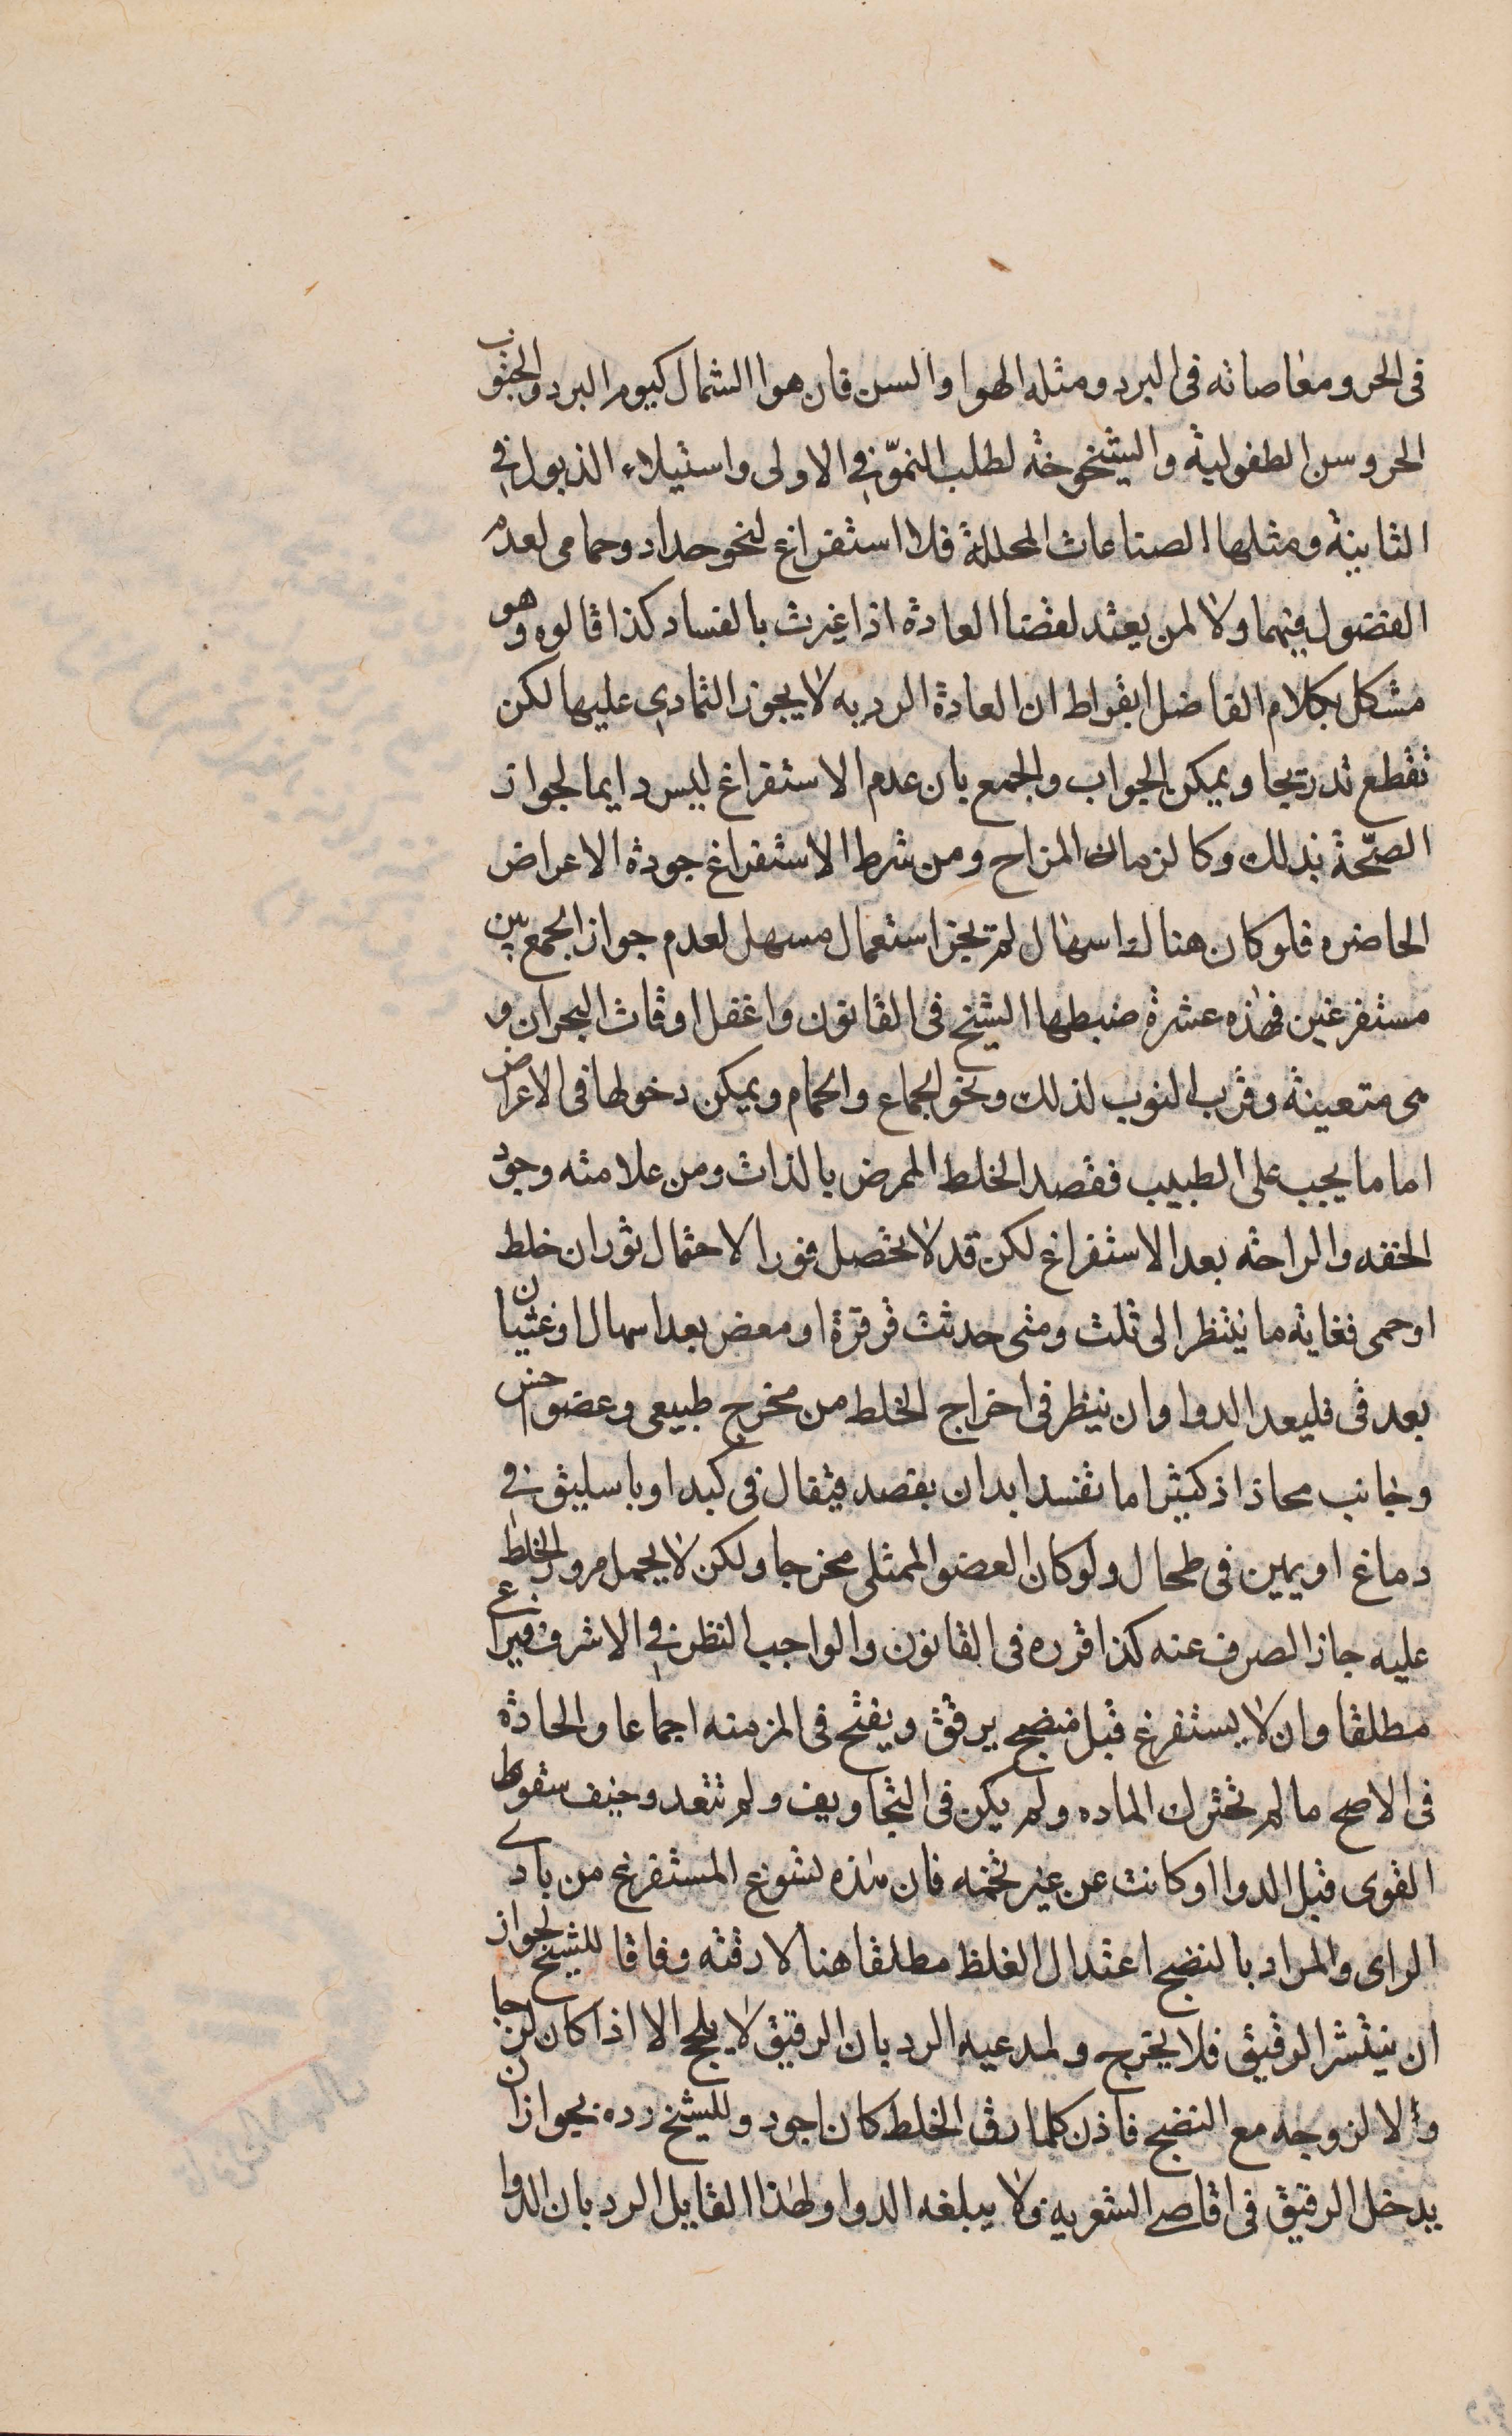 فى الحر ومغاصاته فى البرد ومثله الهوا والسن فان هوا الشمال كيوم البرد والجنوب
الحر وسن الطفولية والشيخوخة لطلب النموّ فى الاولى واستيلاء الذبول فى
الثانية ومثلها الصناعات المحللة فلا استفراغ لنحو حداد وحمامى لعدم
الفضول فيهما ولا لمن يعتد لفضا العادة اذا غيرت بالفساد كذا قالوه وهو
مشكل بكلام الفاضل ابقراط ان العادة الرديه لا يجوز التمادى عليها لكن
تقطع تدريجا ويمكن الجواب والجمع بان عدم الاستفراغ ليس دايما لجواز
الصّحة بذلك وكالزمان المزاج ومن شرط الاستفراغ جودة الاعراض
الحاضره فلو كان هناك اسهال لم يجز استعمال مسهل لعدم جواز الجمع بين
مستفرغين فهذه عشرة ضبطها الشيخ فى القانون واغفل اوقات البحران و
هى متعينة وقرب النوب لذلك ونحو الجماع والحمام ويمكن دخولها فى الاعراض
اما ما يجب على الطبيب فقصد الخلط الممرض بالذات ومن علامته وجود
الخفه والراحة بعد الاستفراغ لكن قد لا تحصل فورا لاحتمال ثوران خلط
او حمى فغاية ما ينتظر الى ثلث ومتى حدثت قرقرة او مغص بعد اسهال او غثيان
بعد قى فليعد الدوا وان ينظر فى اخراج الخلط من مخرج طبيعى وعضو اخس
وجانب محاذ اذ كثيرا ما تفسد ابدان بفصد قيفال فى كبد او باسليق فى
دماغ او يمين فى طحال ولو كان العضو الممتلى مخرجا ولكن لا يحمل مرور الخلط
عليه جاز الصرف عنه كذا قرره فى القانون والواجب النظر فى الاشرف فيراعى
مطلقا وان لا يستفرغ قبل منضج يرقق ويفتح فى المزمنه اجماعا والحادة
فى الاصح ما لم تتحرك الماده ولم يكن فى التجاويف ولم تبعد وخيف سقوط
القوى قبل الدوا او كانت عن غير تخمه فان هذه تسوغ المستفرغ من بادى
الراى والمراد بالنضج اعتدال الغلظ مطلقا هنا لا رقته وفاقا للشيخ لجواز
ان ينتشر الرقيق فلا يخرج ولمدعيه الرد بان الرقيق لا يلحج الا اذا كان لزجا
والا لزوجه مع النضج فاذن كلما رق الخلط كان اجود وللشيخ رده بجواز ان
يدخل الرقيق فى اقاصى الشعريه ولا يبلغه الدوا ولهذا القايل الرد بان الدوا